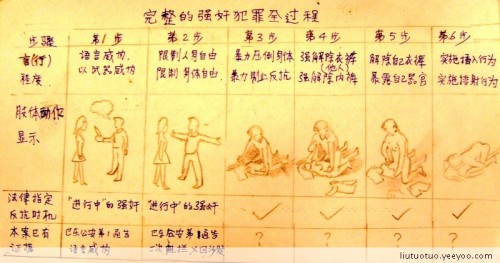 完整的强奸犯罪全过程
步骤 第1步 第2步 第3步 第4步 第5步 第6步
言(行) 语言威胁, 限制人身自由 暴力压倒身体 强解除衣裤 解除自己衣裤 实施插入行为
(他人)
程度 以武器威胁 限制身体自由 暴力制止反抗 强解除内裤 暴露自己器官 实施 行为
肢体动作
显示
法律指定 "进行中"的强奸 "进行中"的强奸
反抗时机
本案已有 巴东公安第1通告 巴东公安第 通告 ? ? ? ?
证据 语言威胁 二次阻拦
liutuotuo.yeeyoo.com